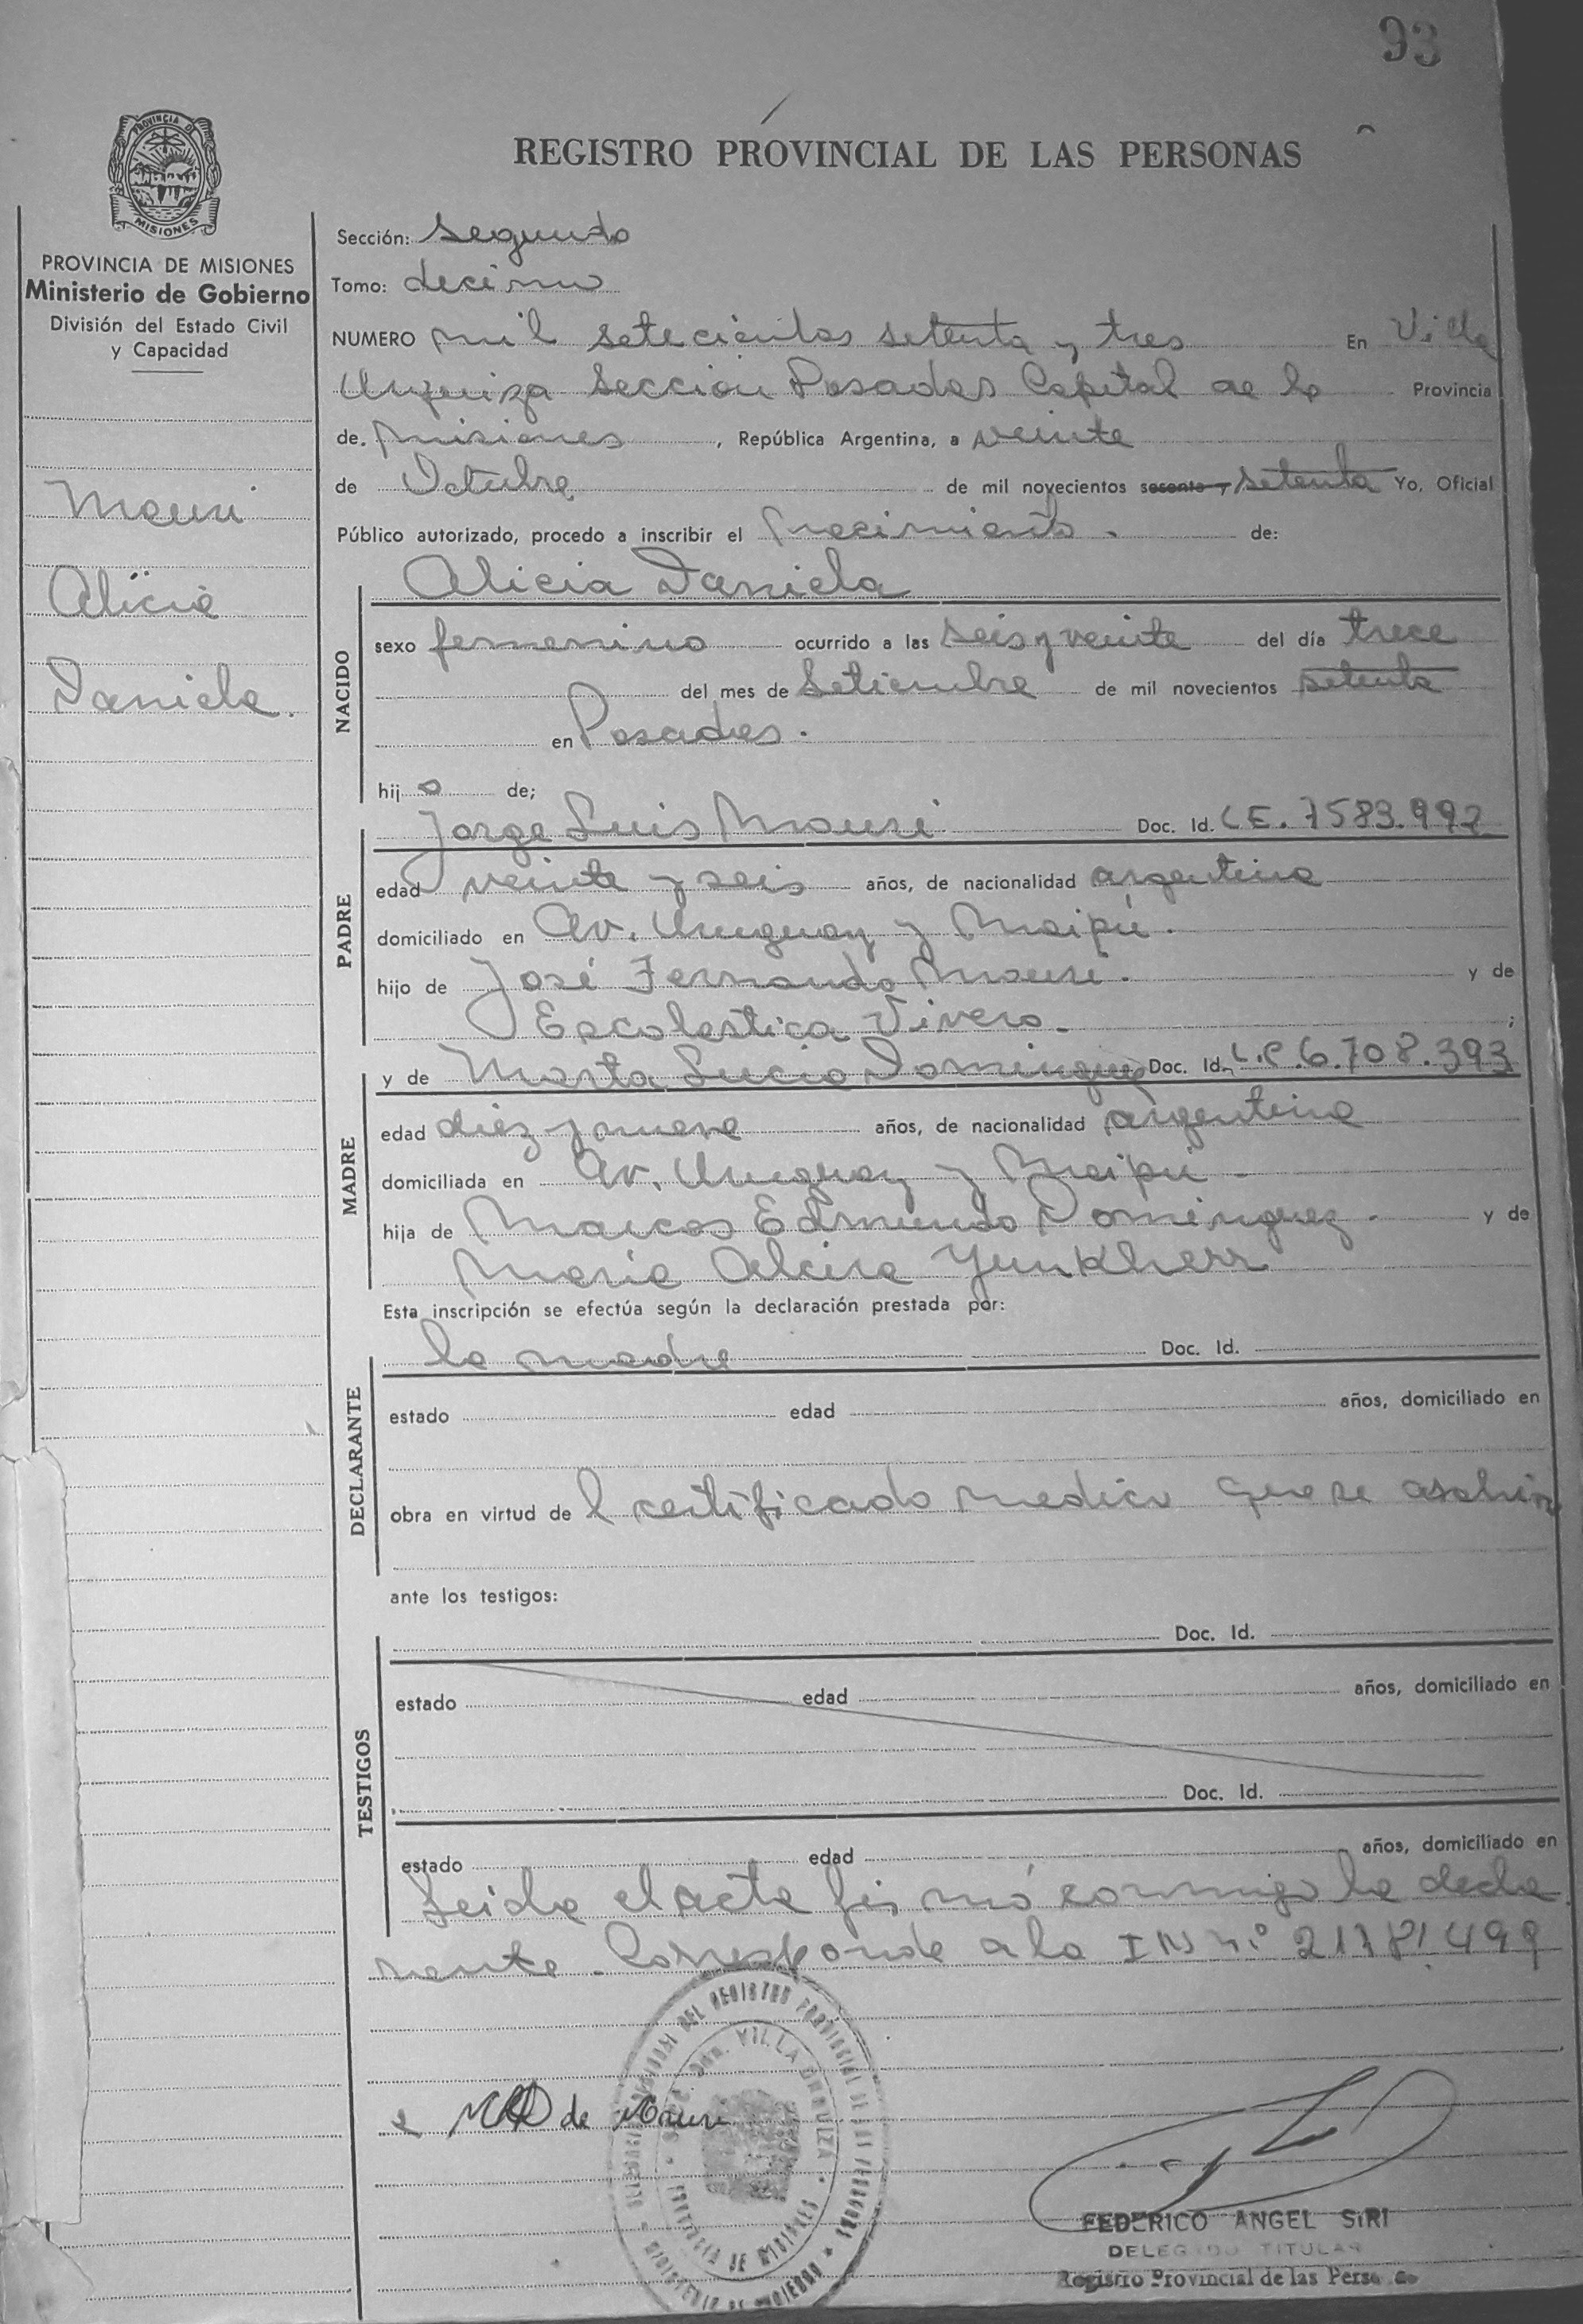 93
REGISTRO PROVINCIAL DE LAS PERSONAS
PROVINCIA DE
MISIONES
PROVINCIA DE MISIONES
Ministerio de Gobierno
División del Estado Civil
y Capacidad
Mauri
Alicia
Daniela.
Sección: Segundo
Tomo: decimo
NUMERO mil setecientos setenta y tres En Villa
Urquiza Sección Posadas Capital de la Provincia
de Misiones, República Argentina, a veinte
de Octubre de mil novecientos sesenta y setenta Yo, Oficial
Público autorizado, procedo a inscribir el nacimiento. de:
NACIDO
Alicia Daniela
sexo femenino ocurrido a las seis y veinte del día trece
del mes de Setiembre de mil novecientos setenta
en Posadas.
hij a de;
PADRE
Jorge Luis Mauri Doc. Id. L.E. 7583.992
edad veinte y seis años, de nacionalidad argentina
domiciliado en Av. Uruguay y Maipú.
hijo de José Fernando Mauri. y de
Escolastica Vivero. ;
MADRE
y de Marta Lucia Dominguez Doc. Id. L.C. 6.708.393
edad diez y nueve años, de nacionalidad argentina
domiciliada en Av. Uruguay y Maipú -
hija de Marcos Edmundo Dominguez - y de
Maria Alcira Yunkherr
Esta inscripción se efectúa según la declaración prestada por:
DECLARANTE
la madre Doc. Id.
estado edad años, domiciliado en
obra en virtud de l certificado medico que se archiva
ante los testigos:
TESTIGOS
Doc. Id.
estado edad años, domiciliado en
Doc. Id.
estado edad años, domiciliado en
Leida el acta firmó conmigo la decla
rante. Corresponde a la IN N.º 21.181.499
de Mauri
VILLA URQUIZA
PROVINCIA DE MISIONES
MINISTERIO DE GOBIERNO
FEDERICO ANGEL SIRI
DELEGADO TITULAR
Registro Provincial de las Personas